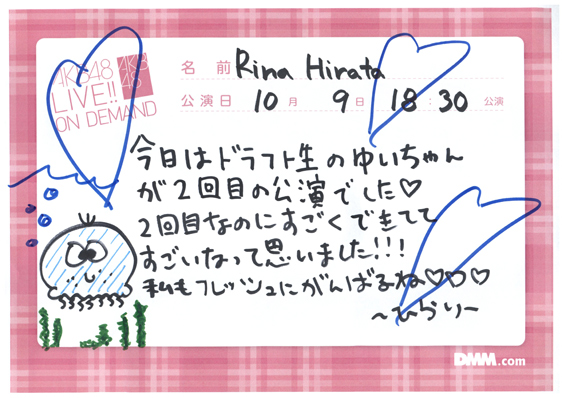 AKB48
LIVE!!
ON DEMAND
AKB
48
名前 Rina Hirata
公演日 10月 9日 18:30 公演
今日はドラフト生のゆいちゃん
が2回目の公演でした♡
2回目なのにすごくできてて
すごいなって思いました!!!
私もフレッシュにがんばるね♡♡♡
〜ひらりー
DMM.com